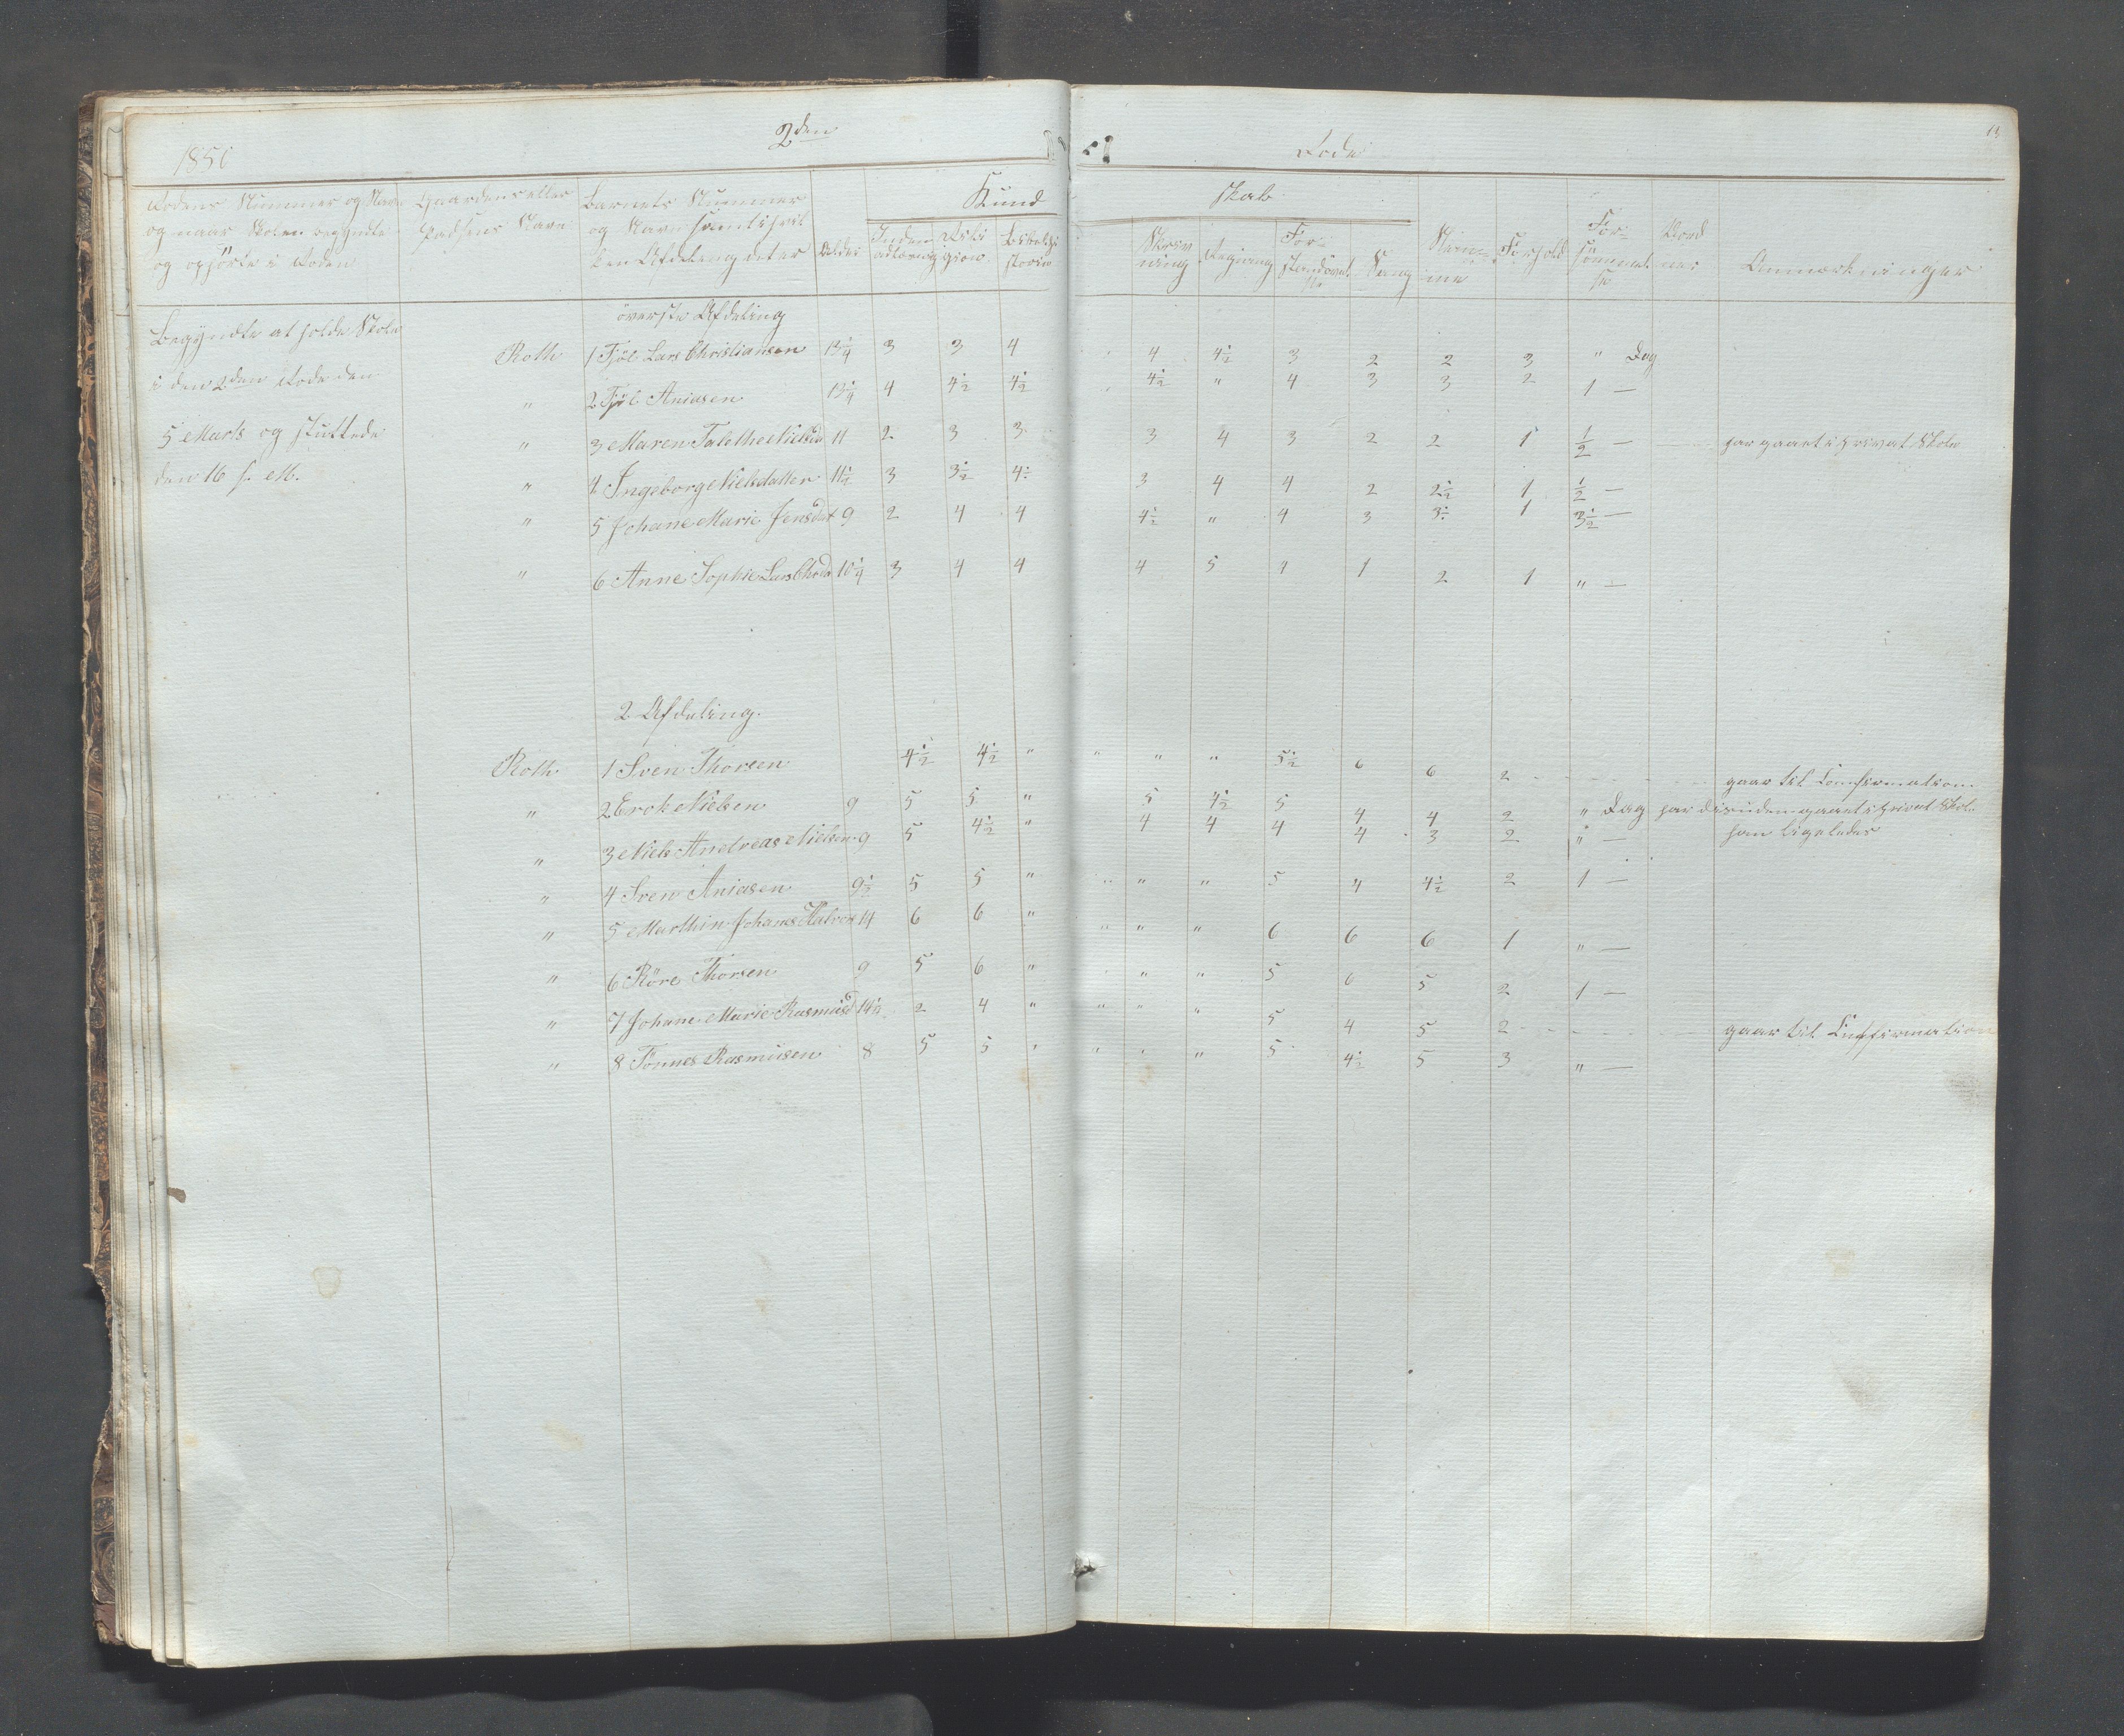 1850
2den
Rode
Rodens Nummer og Navn og naar Skolen begyndte og ophörte i Roden
Gaardens eller Pladsens Navn
Barnets Nummer og Navn samt i hvilken Afdeling det er
Alder
Kund
skab
Indenadlæsning
Religion
Bibelhistorie
Skrivning
Regning
Forstandsøvelse
Sang
Nemme
Forhold
Forsömmelse
Anmærkninger
Begyndte at holde Skole
i den 2den Rode den
5 Marts og sluttede
den 16 s. M.
överste Afdeling
Roth 1 Fjöl Lars Christiansen 13¼ 3 3 4 " 4 4½ 3 2 2 3 " Dag
" 2 Fjöl Aniasen 13¼ 4 4½ 4½ " 4½ " 4 3 3 2 1 —
" 3 Maren Talethe Nielsd 11 2 3 3 3 4 3 2 2 1 ½ — har gaaet i privat Skole
" 4 Ingeborg Nielsdatter 11½ 3 3½ 4 3 4 4 2 2½ 1 ½ —
" 5 Johane Marie Jensdat 9 2 4 4 4½ " 4 3 3 1 3½ —
" 6 Anne Sophie Lars Chrd 10¼ 3 4 4 4 5 4 1 2 1 " —
2 Afdeling.
Roth 1 Sven Thorsen 4½ 4½ " " " " 5½ 6 6 2 gaar til Confirmation
" 2 Erok Nielsen 9 5 5 " 5 4½ 5 4 4 2 " Dag har desuden gaaet i privat Skole
" 3 Niels Andreas Nielsen 9 5 4½ " 4 4 4 4 3 2 " — han ligeledes
" 4 Sven Aniasen 9½ 5 5 " " " " 5 4 4½ 2 1 —
" 5 Marthin Johanes Halvors 14 6 6 " " " " 6 6 6 1 " —
" 6 Köre Thorsen 9 5 6 " " " " 5 6 5 2 1 —
" 7 Johane Marie Rasmusd 14½ 2 4 " " " " 5 4 5 2 gaar til Confirmation
" 8 Tönnes Rasmusen 8 5 5 " " " " 5 4½ 5 3 " —